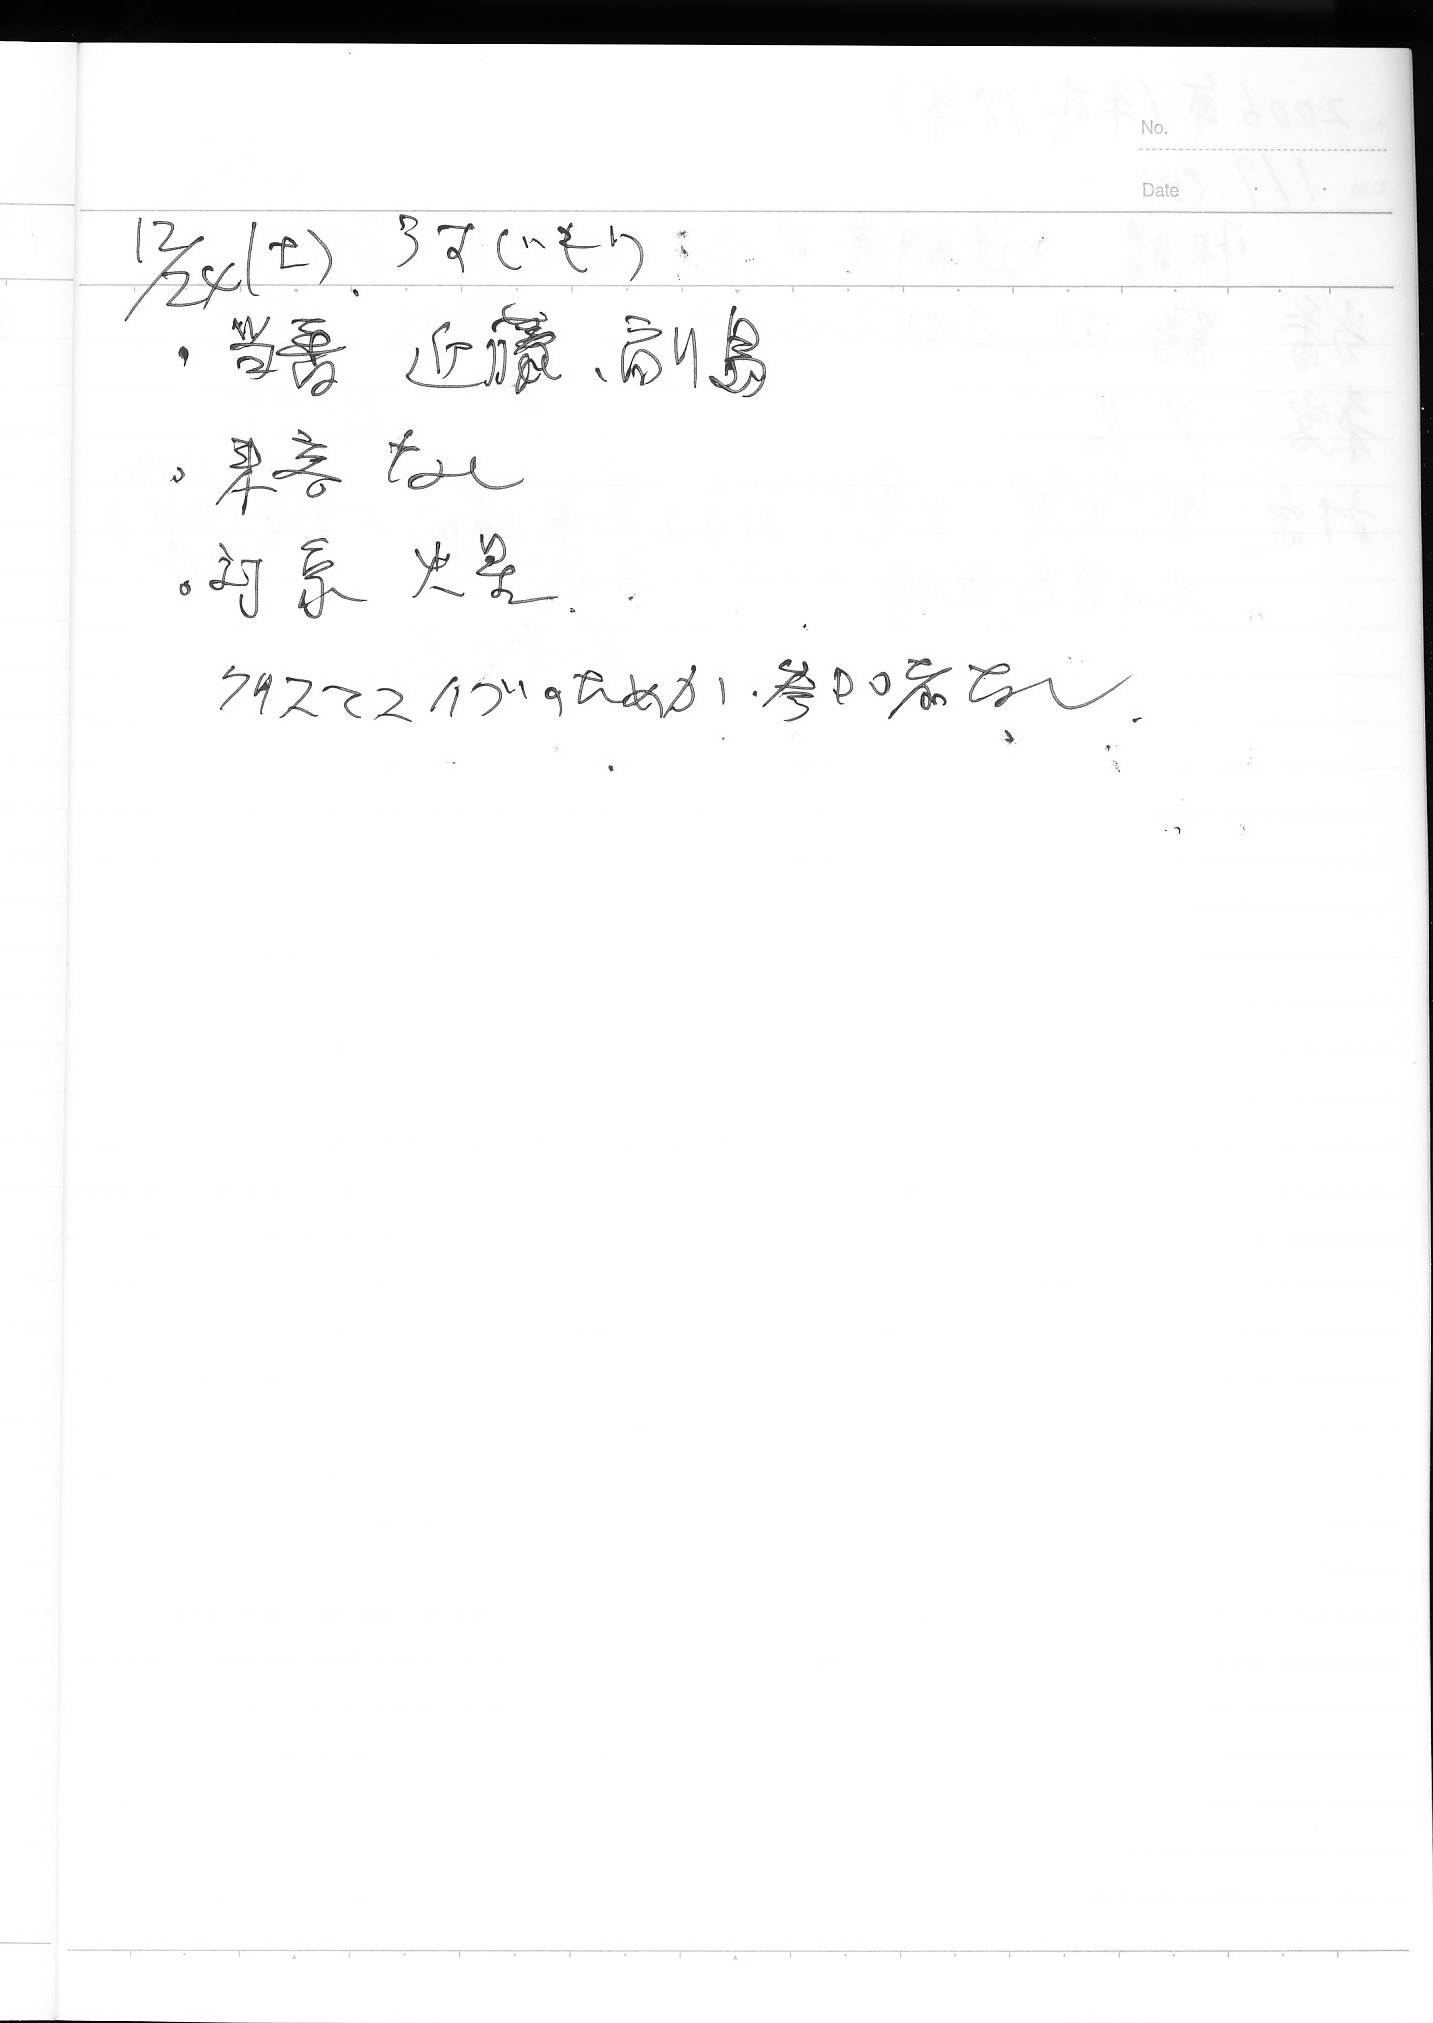 No.
Date
12/24(土) うすぐもり
・当番 近藤、副島
・来客 なし
・対象 火星
クリスマスイブのためか、参加者なし